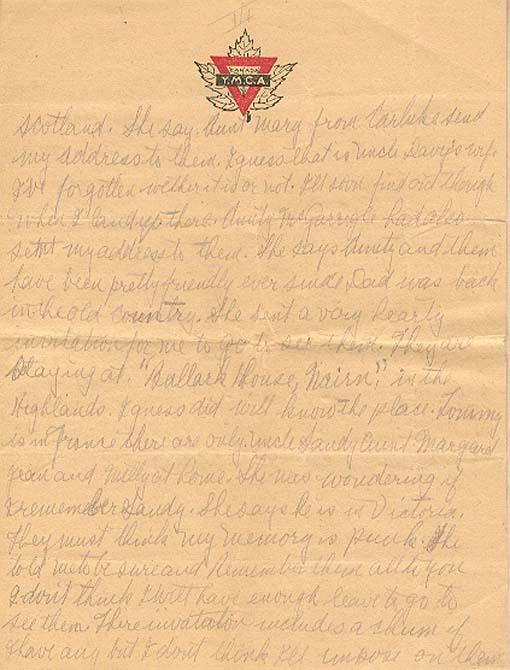 CANADA
Y.M.C.A
Scotland. She say. Aunt Mary from Carluke send
my address to them. I guess that is uncle Davy's wife
I've forgotten wether it is or not. I'll soon find out though
when I land up there. Aunty McGarrigle had also
sent my address to them. She says Aunty and them
have been pretty friendly ever since Dad was back
in the old country. She sent a very hearty
invitation for me to go to see them. They are
staying at. "Ballark House, Nairn," in the
Highlands. I guess did will know the place. Tommy
is in France there are only uncle Sandy Aunt Margard
Jean and Willy at home. She was wondering if
I remember Sandy. She says he is in Victoria.
They must think my memory is punk. She
told me to be sure and remember them all to you
I don't think I will have enough leave to go to
see them. There invatation includes a chum if
I have any but I don't think I'll impose on them